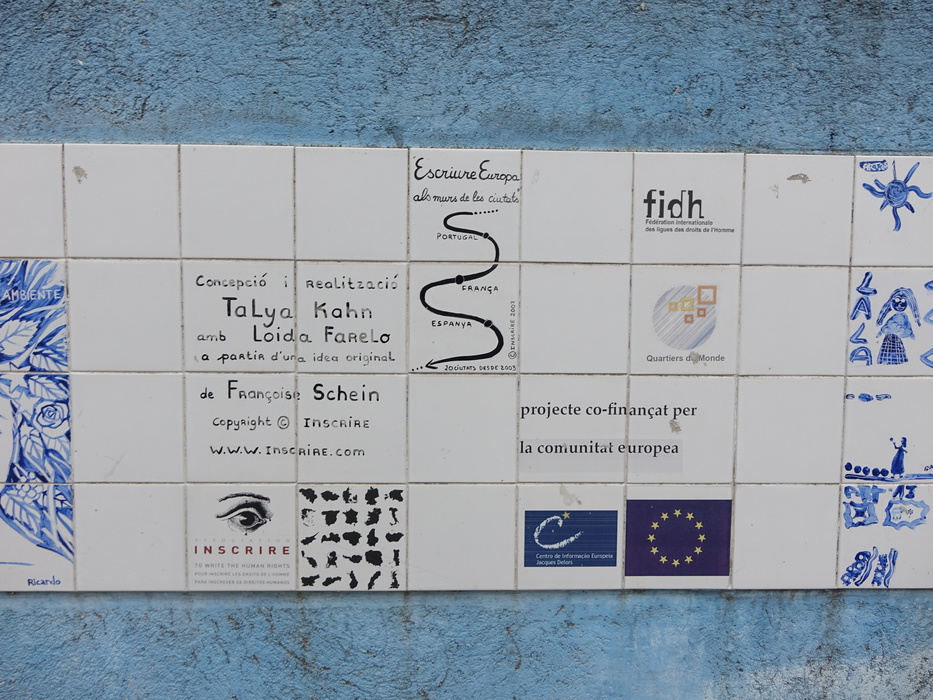 Escriure Europa
als murs de les ciutats
PORTUGAL
FRANÇA
ESPANYA
20 CIUTATS DESDE 2003
© INSCRIRE 2007
fidh
Fédération internationale
des ligues des droits de l'Homme
AMBIENTE
Concepció i realització
Talya Kahn
amb Loida Farelo
a partir d'una idea original
de Françoise Schein
Copyright © INSCRIRE
W.W.W. INSCRIRE.com
Quartiers du Monde
LALALA
projecte co-finançat per
la comunitat europea
ASSOCIATION
INSCRIRE
TO WRITE THE HUMAN RIGHTS
POUR INSCRIRE LES DROITS DE L'HOMME
PARA INSCREVER OS DIREITOS HUMANOS
Centro de Informação Europeia
Jacques Delors
Ricardo